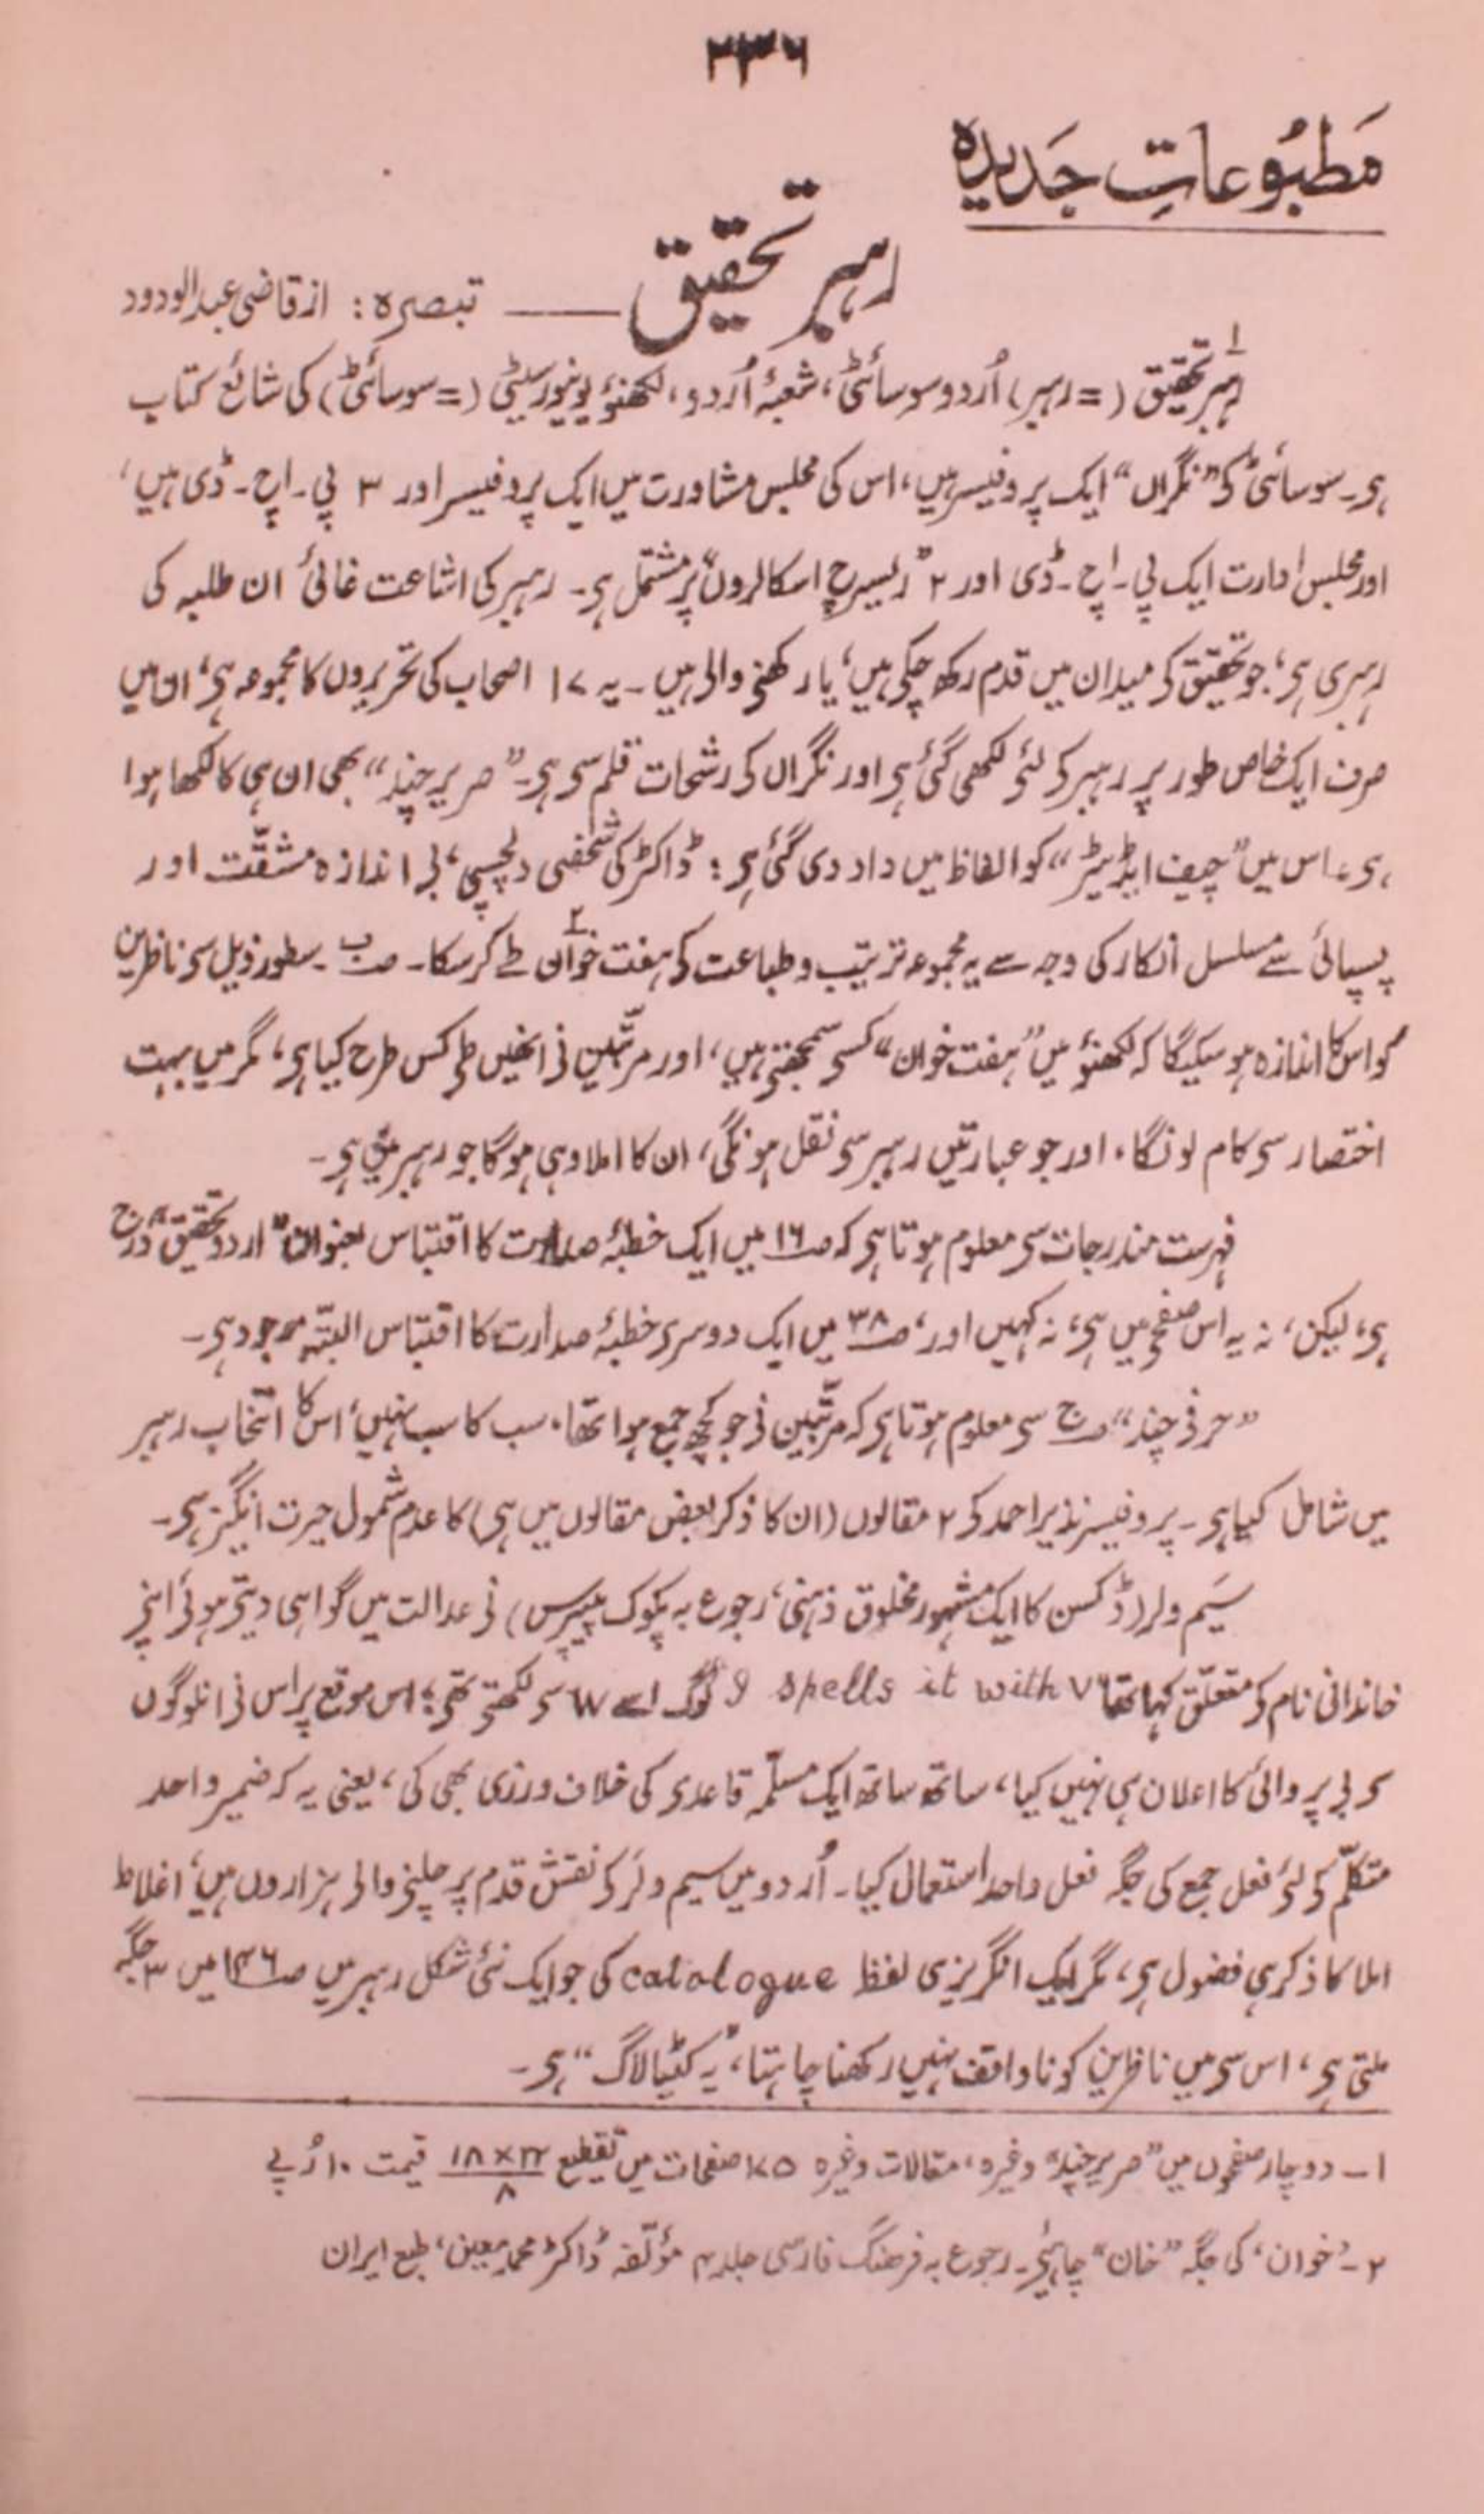 ۲۳۶
مَطبُوعاتِ جَدیدہ
رہبر تحقیق —— تبصرہ: از قاضی عبدالودود
رہبر تحقیق۱ (= رہبر) اُردو سوسائٹی، شعبۂ اُردو، لکھنؤ یونیورسیٹی (= سوسائٹی) کی شائع کتاب
ہی۔ سوسائٹی کی "نگراں" ایک پروفیسر ہیں، اس کی مجلس مشاورت میں ایک پروفیسر اور ۳ پی۔ اچ۔ ڈی ہیں،
اور مجلس ادارت ایک پی۔ اچ۔ ڈی اور ۲ "ریسرچ اسکالروں" پر مشتمل ہی۔ رہبر کی اشاعت غائی ان طلبہ کی
رہبری ہی، جو تحقیق کی میدان میں قدم رکھ چکی ہیں، یا رکھنی والی ہیں۔ یہ ۱۷ اصحاب کی تحریروں کا مجموعہ ہی، ان میں
صرف ایک خاص طور پر رہبر کی لئی لکھی گئی ہی اور نگراں کی رشحات قلم سی ہی۔ "صریر چند" بھی ان ہی کا لکھا ہوا
ہی، اس میں "چیف ایڈیٹر" کو الفاظ میں داد دی گئی ہی: ڈاکٹر کی شخصی دلچسپی، بی اندازہ مشقّت اور
پسپائی سے مسلسل انکار کی وجہ سے یہ مجموعہ ترتیب و طباعت کی ہفت خوان۲ طے کر سکا۔ صـ ب۔ سطور ذیل سی ناظرین
کو اس کا اندازہ ہو سکیگا کہ لکھنؤ میں "ہفت خوان" کسی سمجھتی ہیں، اور مرتّبین نی انھیں طی کس طرح کیا ہی، مگر میں بہت
اختصار سی کام لونگا، اور جو عبارتیں رہبر سی نقل ہونگی، ان کا املا وہی ہوگا جو رہبر میں ہی۔
فہرست مندرجات سی معلوم ہوتا ہی کہ صـ ۱۶ میں ایک خطبۂ صدارت کا اقتباس بعنوان "اردو تحقیق" درج
ہی، لیکن، نہ یہ اس صفحی میں ہی، نہ کہیں اور، صـ ۳۸ میں ایک دوسری خطبۂ صدارت کا اقتباس البتّہ موجود ہی۔
"حرفی چند" صـ ج سی معلوم ہوتا ہی کہ مرتّبین نی جو کچھ جمع ہوا تھا، سب کا سب نہیں، اس کا انتخاب رہبر
میں شامل کیا ہی۔ پروفیسر نذیر احمد کی ۲ مقالوں (ان کا ذکر بعض مقالوں میں ہی) کا عدم شمول حیرت انگیز ہی۔
سَیم ولر (ڈکسن کا ایک مشہور مخلوق ذہنی، رجوع بہ پکوک پیپرس) نی عدالت میں گواہی دیتی ہوئی اپنی
خاندانی نام کی متعلّق کہا تھا "I spells it with V لوگ اسے W سی لکھتی تھی؛ اس موقع پر اس نی ان لوگوں
سی بی پروائی کا اعلان ہی نہیں کیا، ساتھ ساتھ ایک مسلّمہ قاعدی کی خلاف ورزی بھی کی، یعنی یہ کہ ضمیر واحد
متکلّم کی لئی فعل جمع کی جگہ فعل واحد استعمال کیا۔ اُردو میں سیم ولر کی نقش قدم پر چلنی والی ہزاروں ہیں، اغلاط
املا کا ذکر ہی فضول ہی، مگر ایک انگریزی لفظ catalogue کی جو ایک نئی شکل رہبر میں صـ ۱۳۶ میں ۳ جگہ
ملتی ہی، اس سی میں ناظرین کو ناواقف نہیں رکھنا چاہتا، یہ "کٹیالاگ" ہی۔
۱۔ دو چار صفحوں میں "صریر چند" وغیرہ، مقالات وغیرہ ۱۷۵ صفحات میں تقطیع ۲۲×۱۸/۸ قیمت ۱۰ رُپے
۲۔ 'خوان' کی جگہ "خان" چاہئی۔ رجوع بہ فرھنگ فارسی جلد ۴ مؤلّفہ ڈاکٹر محمد معین، طبع ایران